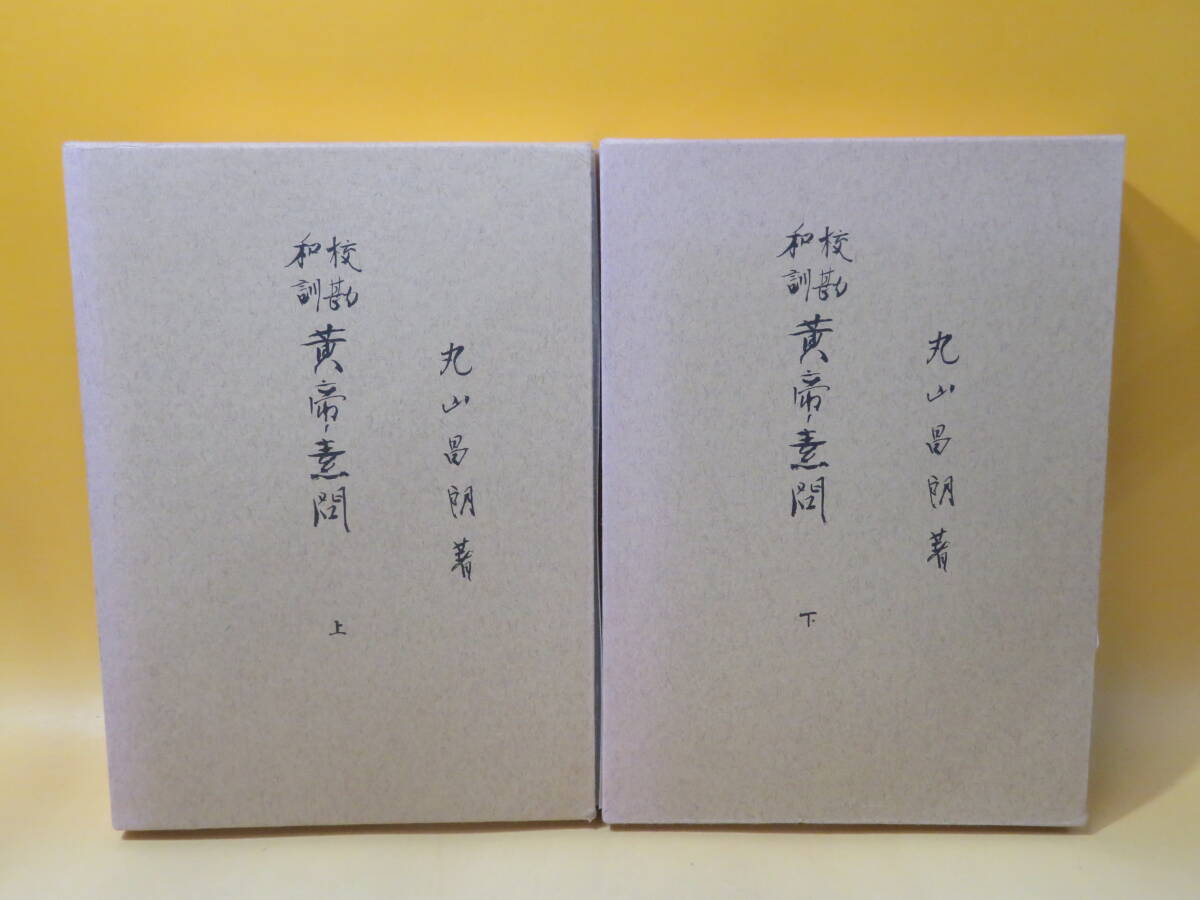 校勘
和訓
黄帝素問
丸山昌朗著
上
校勘
和訓
黄帝素問
丸山昌朗著
下